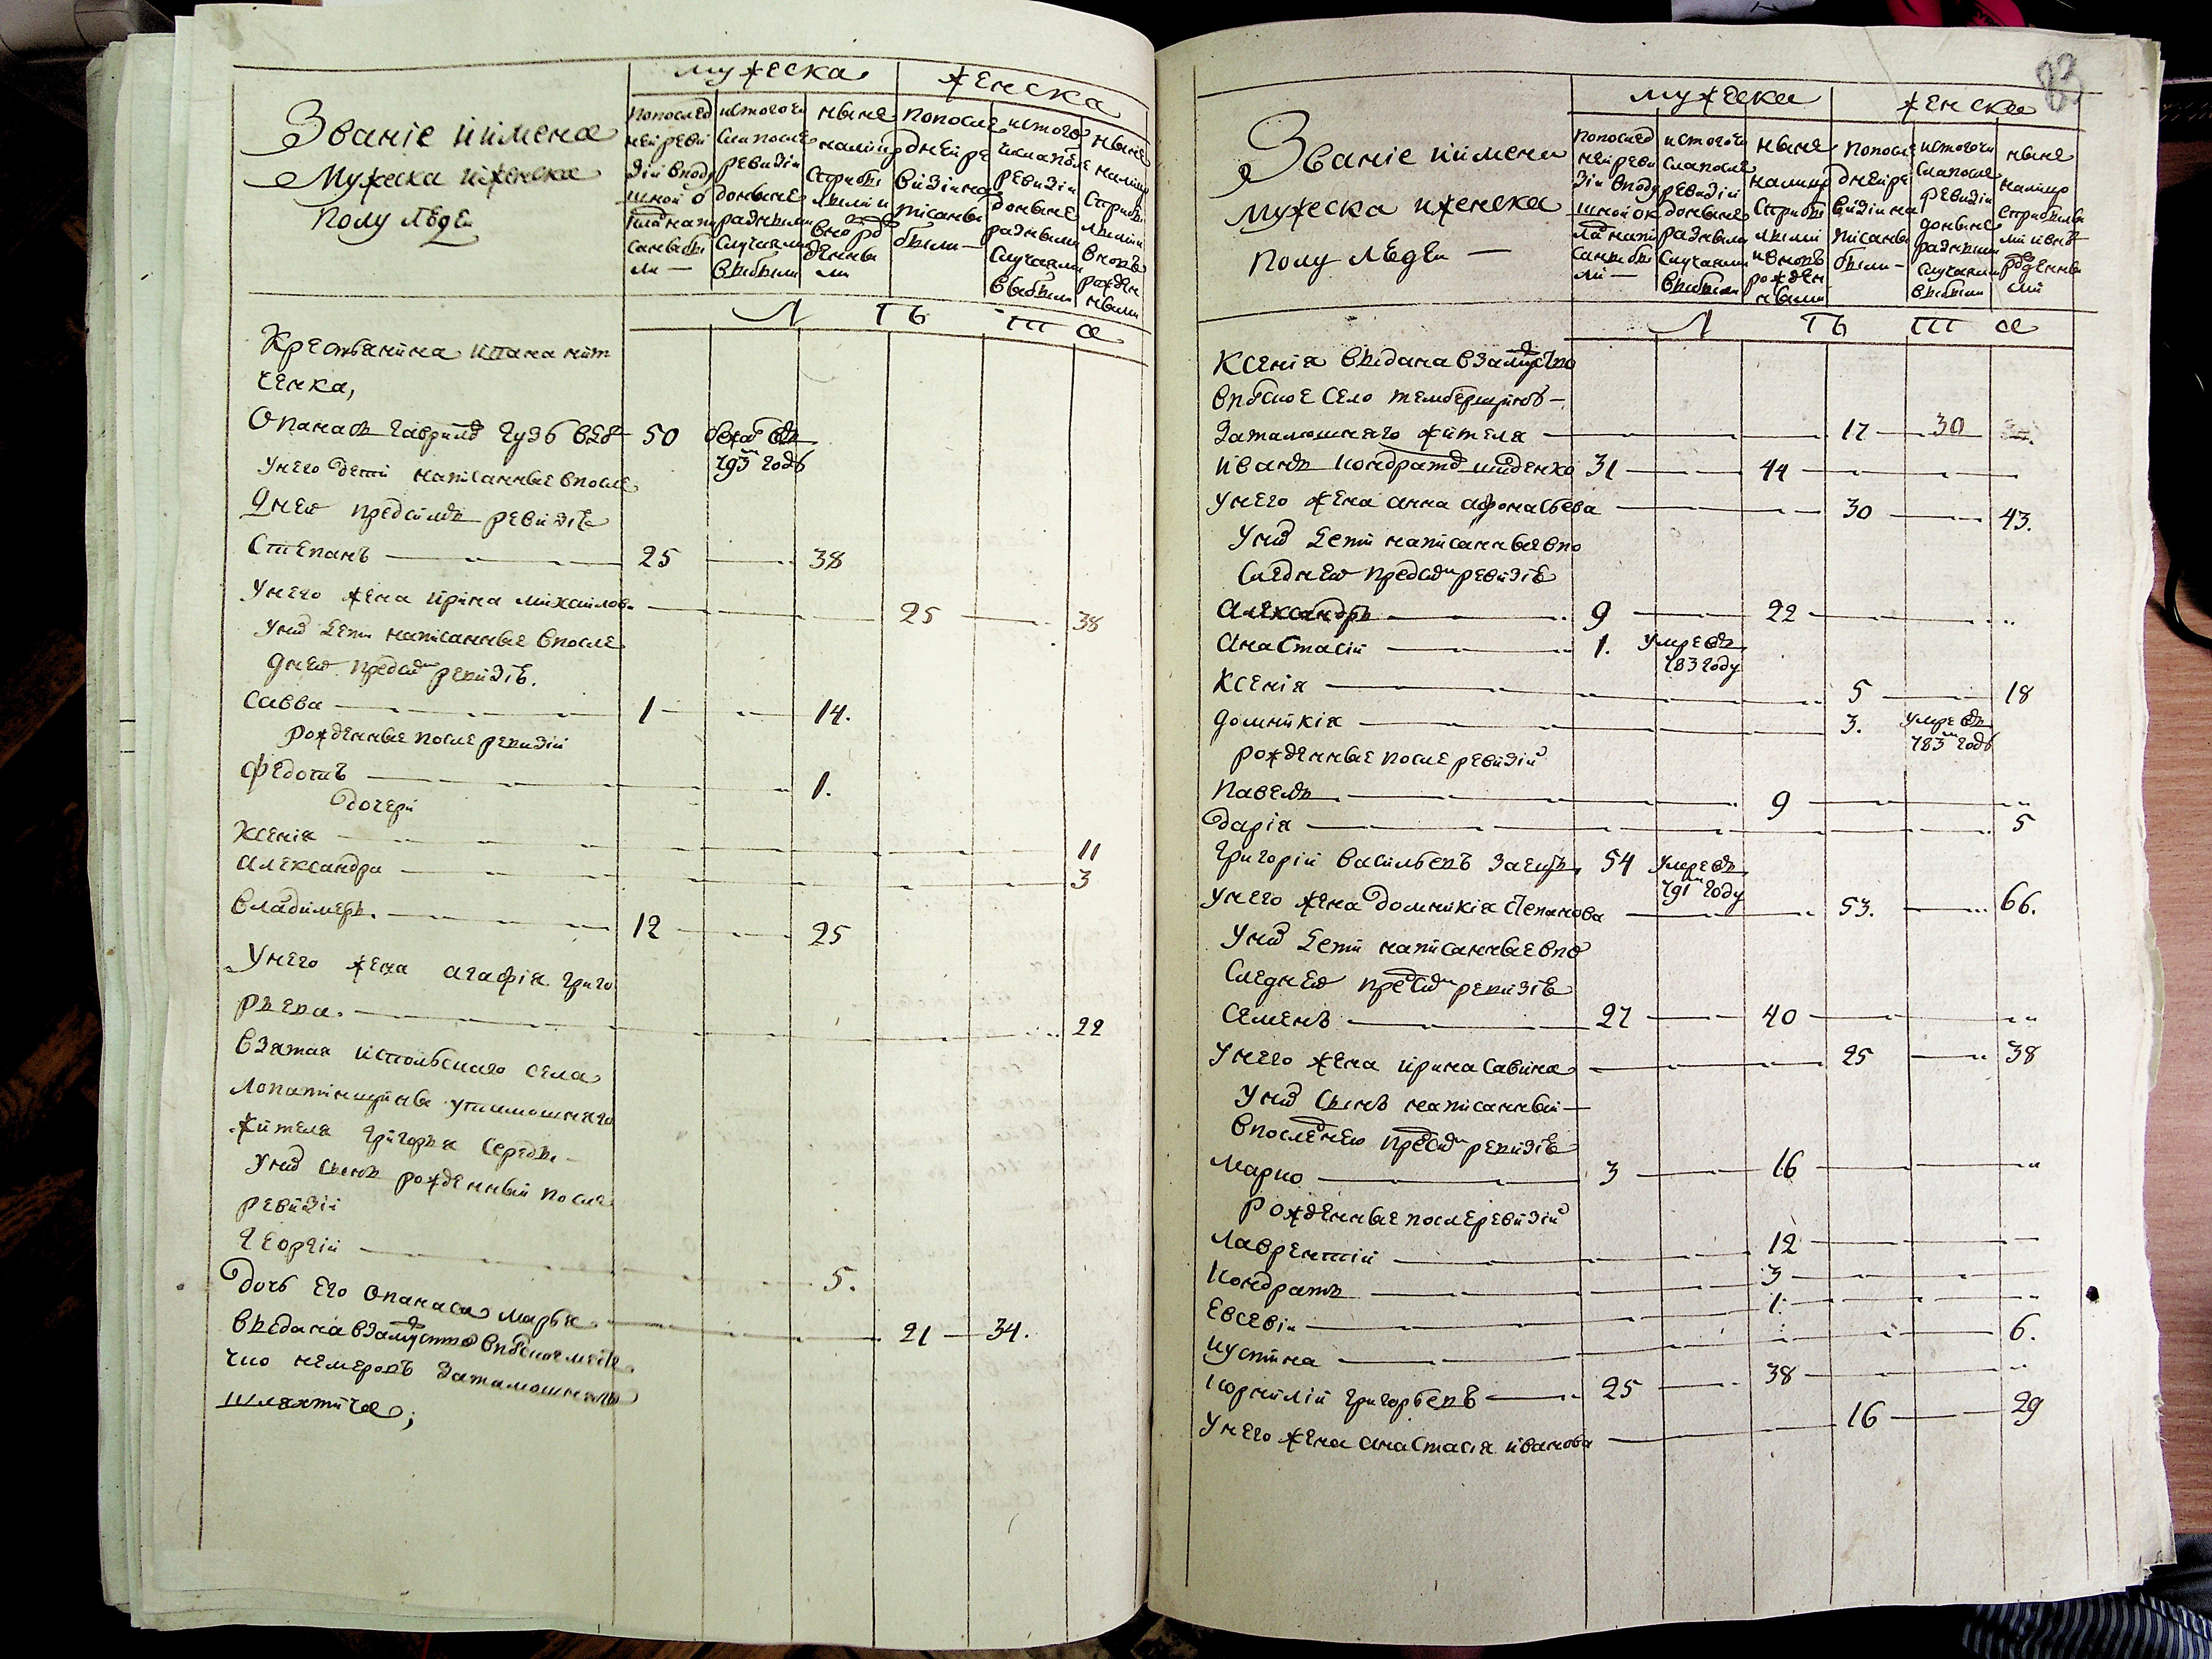 Званіе иимена
Мужеска иженска
полу людеи
мужеска
женска
попослед
ней реви
зіи вподу
шной о
клад напи
саны бы
ли —
истого чи
сла после
ревизіи
доныне
разными
случаями
выбыли
ныне
налицо
сприбы
лыми и
вно ро
жденны
ми
попосле
дней ре
визіи на
писаны
были —
истого
числа после
ревизіи
доныне
разными
случаями
выбыли
ныне
налицо
сприбы
лыми
вновь
рожден
ными
Л ѣ т а
Крестьянина
ченка,
Опанасъ Гаврилов 50
793 годѣ
Унего дети написанные впосле
днеи предсимъ ревизіѣ
Степанъ 25 38
Унего жена ирина михаилова 25 38
Уних дети написанные впосле
днеи предсим ревизіѣ.
Савва 1 14.
рожденные после ревизіи
Федотъ 1.
дочери
Ксеніа 11
Александра 3
Владимеръ. 12 25
Унего жена агафіа григо
рьева. 22
взятая испольскаго села
Лопатинщины утамошняго
жителя Григорья Середы
Уних сынъ рожденный после
ревизіи
Георгій 5.
Дочь его опанаса марья 21 34.
выдана взамуство впольское месте
чко немеровъ затамошняго
шляхтича;
83
Званіе иимена
мужеска иженска
полу людеи —
мужеска
женска
попослед
ней реви
зіи вподу
шной ок
лад напи
саны бы
ли —
истого чи
сла после
ревизіи
доныне
разными
случаями
выбыли
ныне
налицо
сприбы
лыми
ивновь
рожден
ными
попосле
дней ре
визіи на
писаны
были —
истого чи
сла после
ревизіи
доныне
разными
случаями
выбыли
ныне
налицо
сприбылы
ми ивно
рожденны
ми
Л ѣ т а
Ксеніа выдана взамуство
впольское село
затамошняго жителя 17 30
Иванъ Кондратов 31 44
Унего жена анна афонасьева 30 43.
Уних дети написанные впо
следнеи предсим ревизіѣ
Александръ 9 22
Анастасій 1. умре въ
783 году
Ксеніа 5 18
Домникіа 3. умре въ
783 годѣ
рожденные после ревизіи
Павелъ 9
Даріа 5
Григорій Васильевъ Заецъ 54 умре въ
791 году
Унего жена домникіа Степанова 53. 66.
Уних дети написанные впо
следнеи предсим ревизіѣ
Семенъ 27 40
Унего жена ирина Савина 25 38
Уних сынъ написанный —
впоследнею предсим ревизіѣ
Марко 3 16
Рожденные после ревизіи
Лаврентій 12
Кондратъ 3
Евсевій 1.
Иустина 6.
Корнилій Григорьевъ 25 38
Унего жена анастасіа иванова 16 29